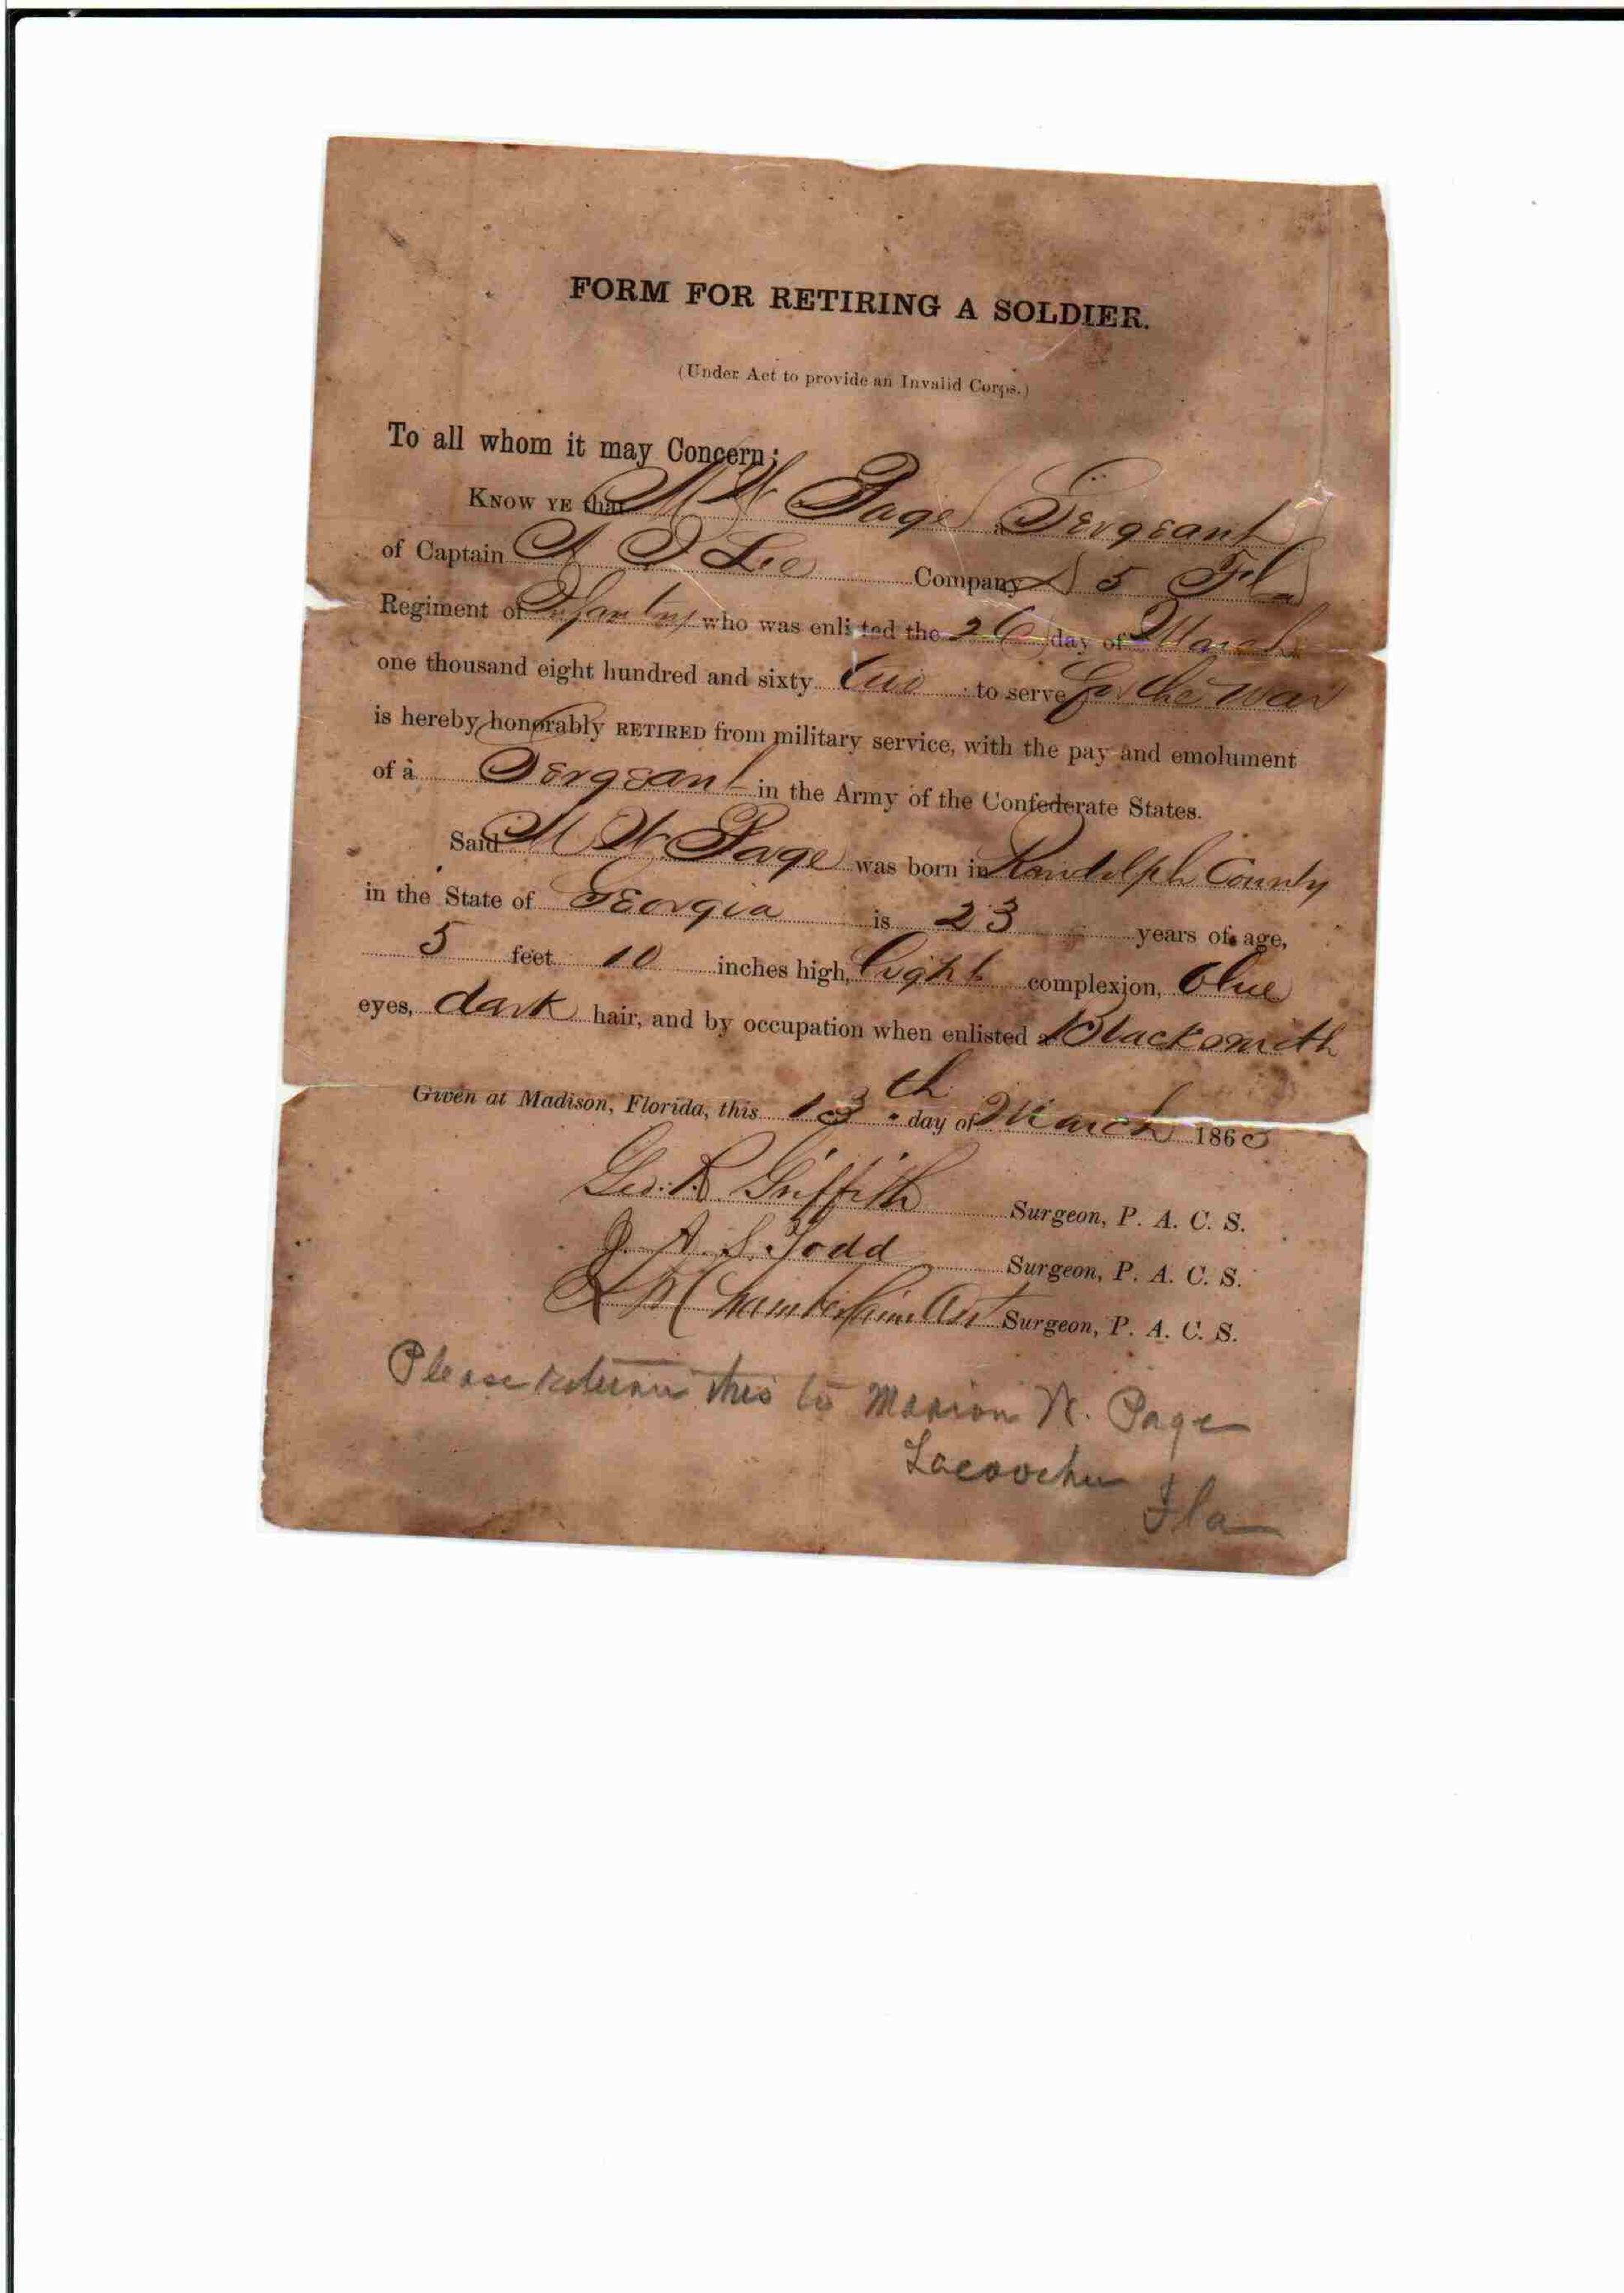 FORM FOR RETIRING A SOLDIER.
(Under Act to provide an Invalid Corps.)
To all whom it may Concern;
KNOW YE that M W Page a Sergeant
of Captain Lee Company 5 Fla
Regiment of Infantry who was enlisted the 26 day of March
one thousand eight hundred and sixty two to serve for the war
is hereby honorably RETIRED from military service, with the pay and emolument
of a Sergeant in the Army of the Confederate States.
Said M W Page was born in Randolph County
in the State of Georgia is 23 years of age,
5 feet 10 inches high, light complexion, blue
eyes, dark hair, and by occupation when enlisted a Blacksmith
Given at Madison, Florida, this 13th day of March 186
Geo. R. Griffith Surgeon, P. A. C. S.
J. A. S. Todd Surgeon, P. A. C. S.
Chamberlain Ast Surgeon, P. A. C. S.
Please return this to Marion W. Page
Lacoochee
Fla